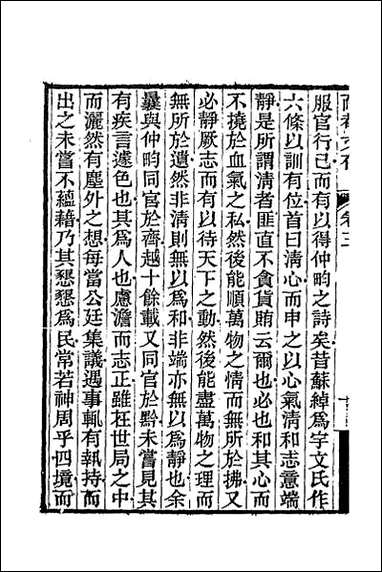 服官行己而有以得仲畇之詩矣昔蘇綽爲宇文氏作
六條以訓有位首曰清心而申之以心氣清和志意端
靜是所謂清者匪直不貪貨賄云爾也必也和其心而
不撓於血氣之私然後能順萬物之情而無所於拂又
必靜厥志而有以待天下之動然後能盡萬物之理而
無所於遺然非清則無以爲和非端亦無以爲靜也余
曩與仲畇同官於齊越十餘載又同官於黔未嘗見其
有疾言遽色也其爲人也慮澹而志正雖在世局之中
而灑然有塵外之想每當公廷集議遇事輒有執持而
出之未嘗不蘊藉乃其懇懇爲民常若神周乎四境而